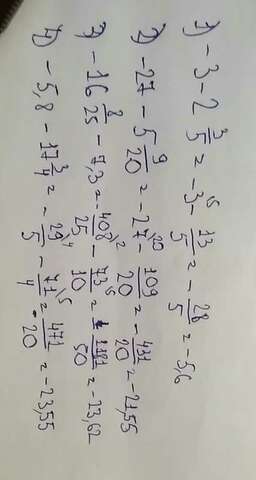 1) -3 - 2 3/5 = -3^5 - 13/5 = -28/5 = -5,6
2) -27 - 5 9/20 = -27^20 - 109/20 = -431/20 = -21,55
3) -16 8/25 - 7,3 = -408/25^2 - 73/10^5 = -1181/50 = -23,62
4) -5,8 - 17 3/4 = -29/5^4 - 71/4^5 = -471/20 = -23,55